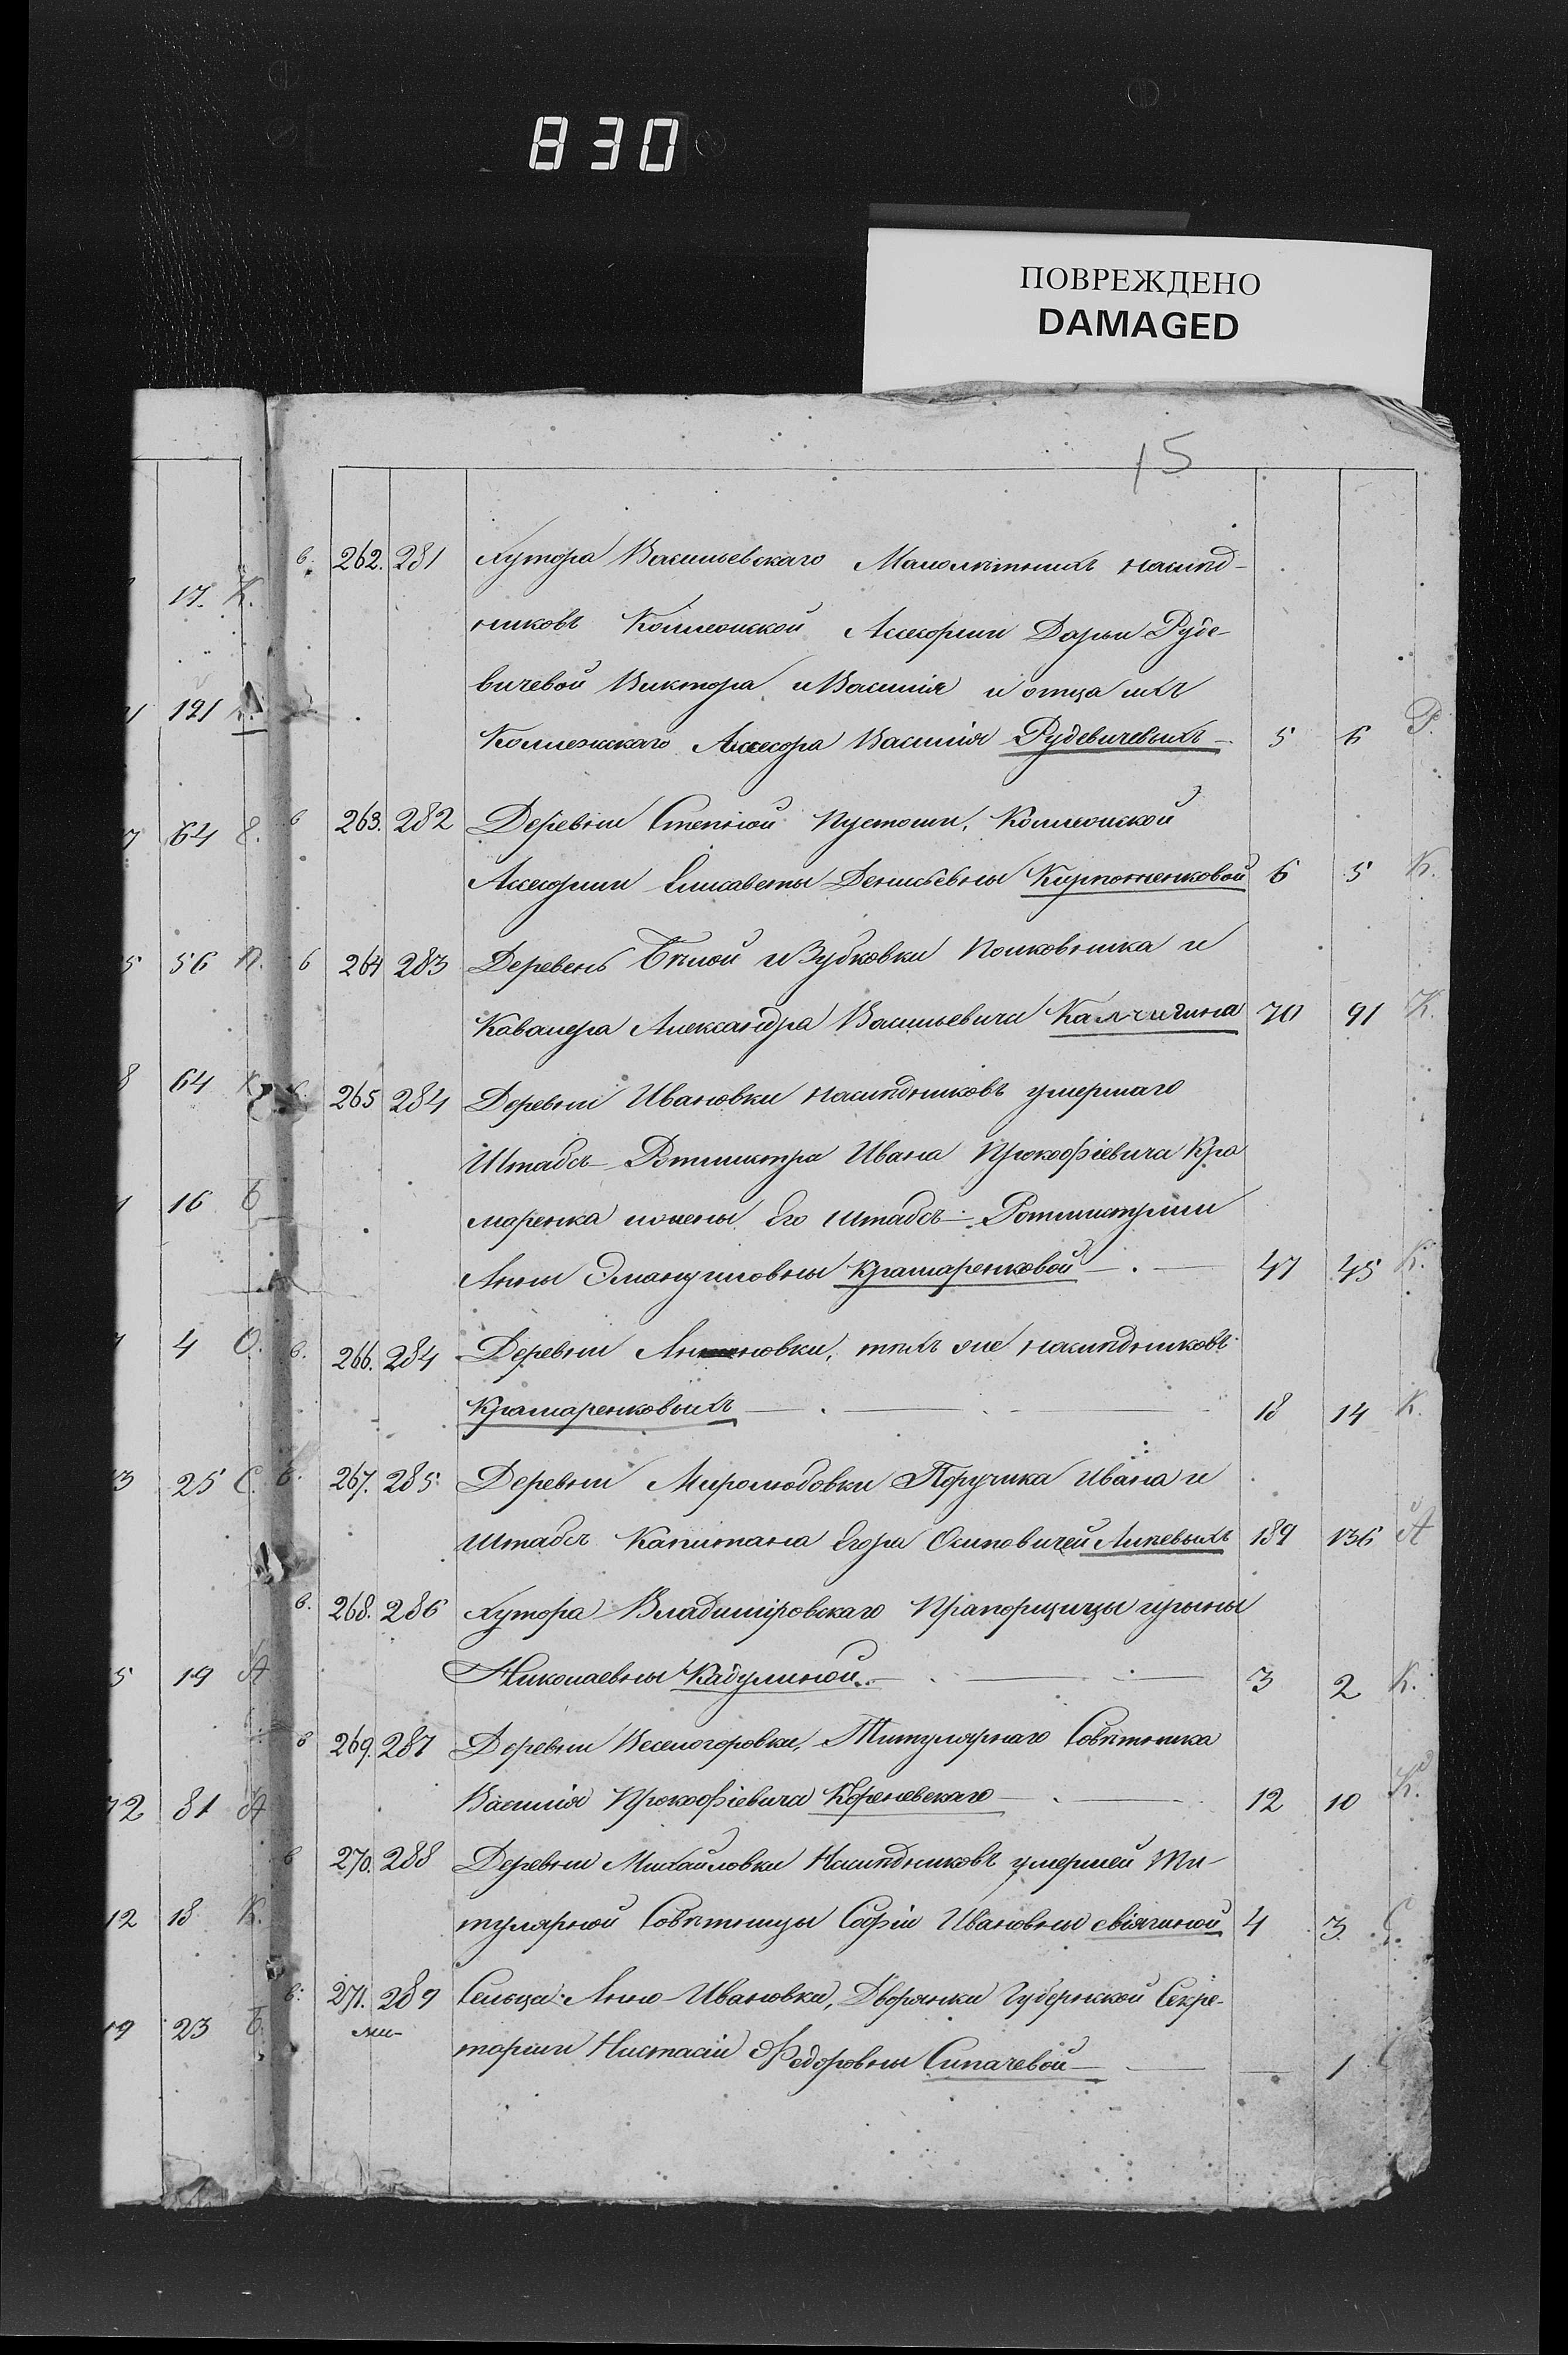 830
ПОВРЕЖДЕНО
DAMAGED
15
в. 262. 281 Хутора Васильевскаго Малолѣтнихъ наслѣд-
никовъ Коллежской Асессорши Дарьи Руде-
вичевой Виктора и Василія и отца ихъ
Коллежскаго Ассесора Василія Рудевичевыхъ — 5 6 Р.
в 263. 282 Деревни Степной Пустоши, Коллежской
Ассесорши Елисаветы Денисьевны Кирпотенковой 6 5 К.
в 264 283 Деревень Бѣлой и Зубковки Полковника и
Кавалера Александра Васильевича Калчигина 70 91 К.
в. 265 284 Деревни Ивановки наслѣдниковъ умершаго
Штабсъ-Ротмистра Ивана Прокофіевича Кра
маренка и жены Его Штабсъ-Ротмистрши
Анны Эмануиловны Крамаренковой — 47 45 К.
в. 266. 284 Деревни Анновки, тѣхъ же наслѣдниковъ
Крамаренковыхъ — 18 14 К.
в. 267. 285 Деревни Миролюбовки Поручика Ивана и
Штабсъ Капитана Егора Осиповичей Алпевыхъ 189 136 А
в. 268. 286 Хутора Владимировскаго Прапорщицы Ирины
Николаевны Кадулиной — 3 2 К.
в 269. 287 Деревни Веселогоровки, Титулярнаго Совѣтника
Василія Прокофіевича Кореневскаго — 12 10 К.
в 270. 288 Деревни Михайловки Наслѣдниковъ умершей Ти-
тулярной Совѣтницы Софіи Ивановны Свіягиной 4 3 С.
в: 271. 289 Сельца Анно-Ивановки, Дворянки Губернской Секре-
тарши Настасіи Федоровны Сипачевой — — 1 С
17. К.
121
64 Е.
56 П.
64 К
16 Б
4 О.
25 С.
19 А
72 81 А
12 18 К.
19 23 Б